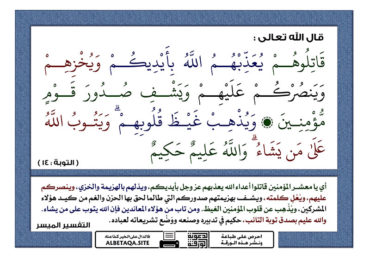 قال الله تعالى :
قَاتِلُوهُمْ يُعَذِّبْهُمُ اللَّهُ بِأَيْدِيكُمْ وَيُخْزِهِمْ
وَيَنصُرْكُمْ عَلَيْهِمْ وَيَشْفِ صُدُورَ قَوْمٍ
مُّؤْمِنِينَ ۞ وَيُذْهِبْ غَيْظَ قُلُوبِهِمْ ۗ وَيَتُوبُ اللَّهُ
عَلَىٰ مَن يَشَاءُ ۗ وَاللَّهُ عَلِيمٌ حَكِيمٌ
( التوبة : ١٤ )
أي يا معشر المؤمنين قاتلوا أعداء الله يعذبهم عز وجل بأيديكم، ويذلهم بالهزيمة والخزي، وينصركم
عليهم، ويُعْلِ كلمته، ويشف بهزيمتهم صدوركم التي طالما لحق بها الحزن والغم من كيد هؤلاء
المشركين، ويُذْهِب عن قلوب المؤمنين الغيظ. ومن تاب من هؤلاء المعاندين فإن الله يتوب على من يشاء.
والله عليم بصدق توبة التائب، حكيم في تدبيره وصنعه ووَضْع تشريعاته لعباده.
التفسير الميسر
احرص على طباعة
ونشر هذه الورقة
فالدال على الخير كفاعله
ALBETAQA.SITE